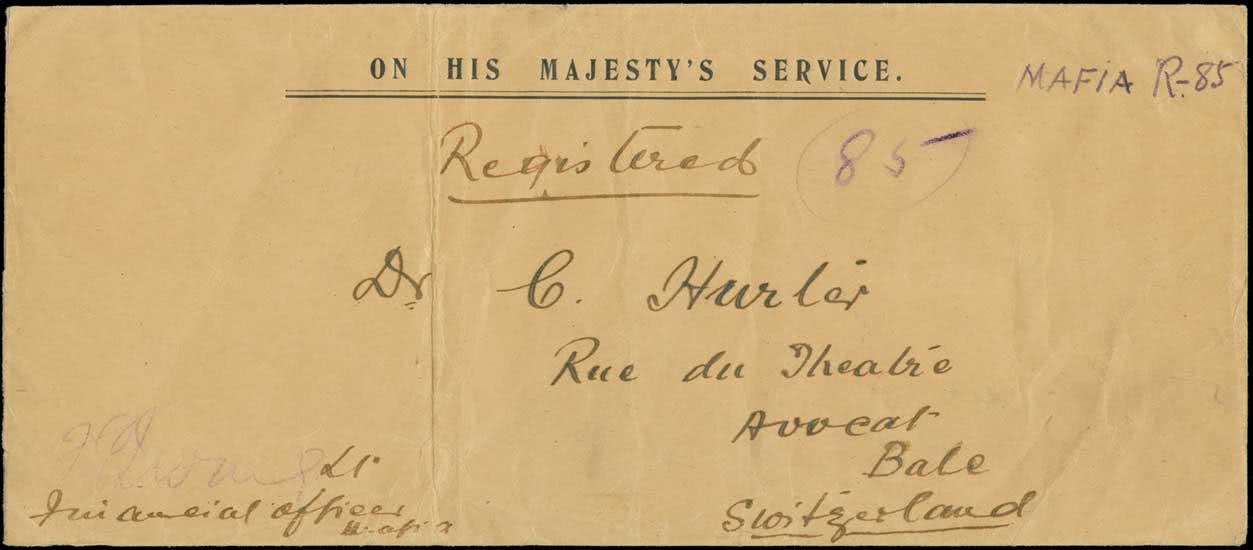 ON HIS MAJESTY'S SERVICE.
MAFIA R-85
Registered 85
Dr C. Hurlér
Rue du Theatre
Avocat
Bale
Switzerland
Lt
Financial officer
Mafia